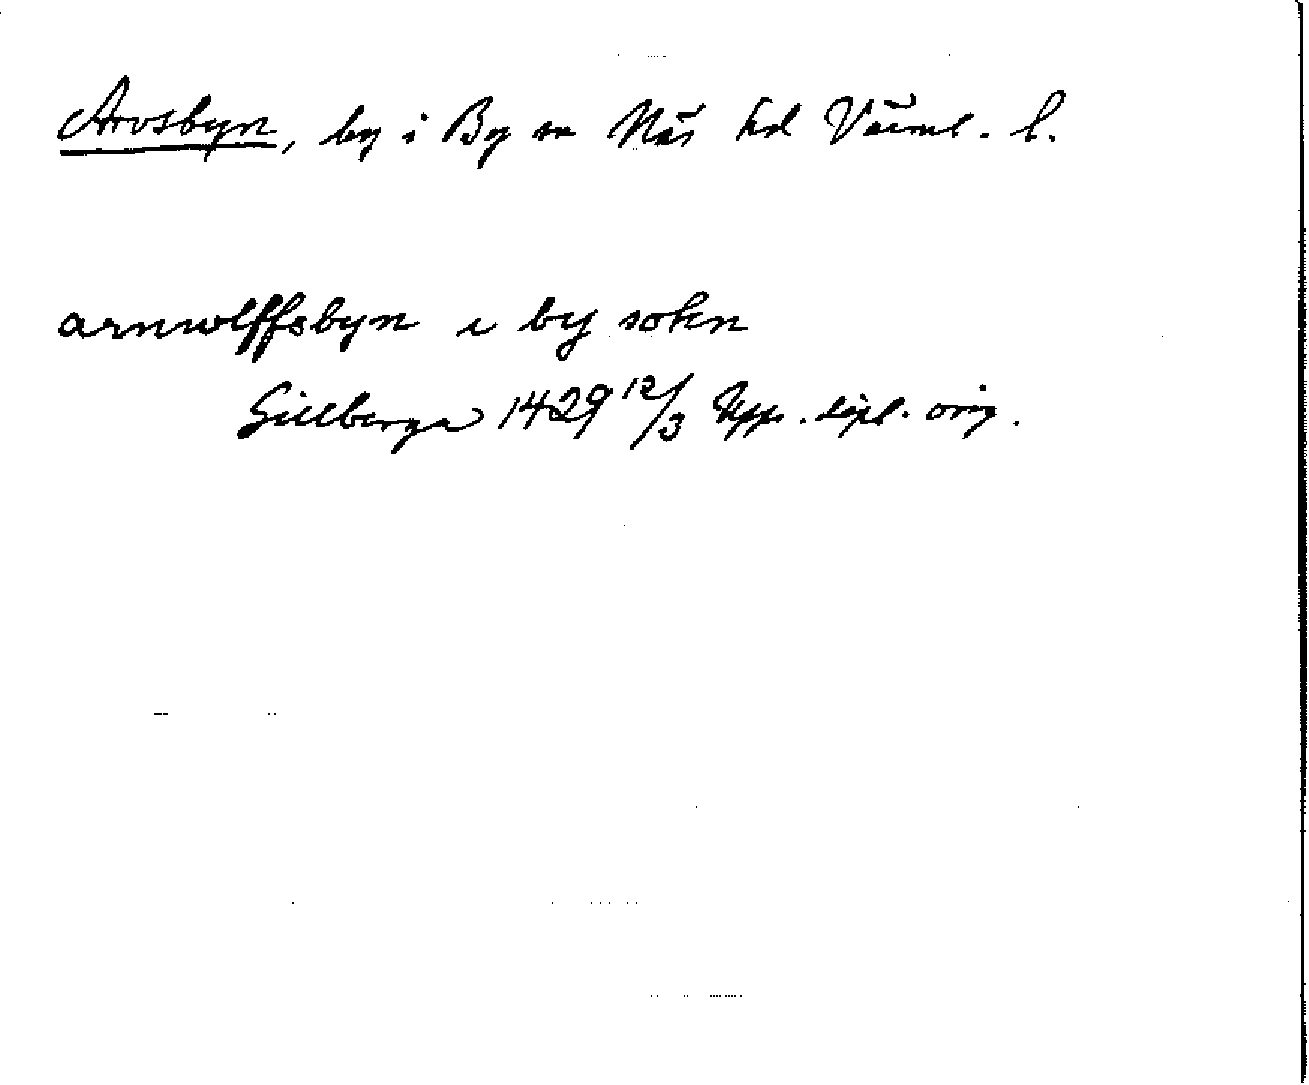 Arosbyn, by i By sn Näs hd Värml. l.
arnwlffsbyn i by sokn
Gillberga 1429 12/3 Upps. dipl. orig.